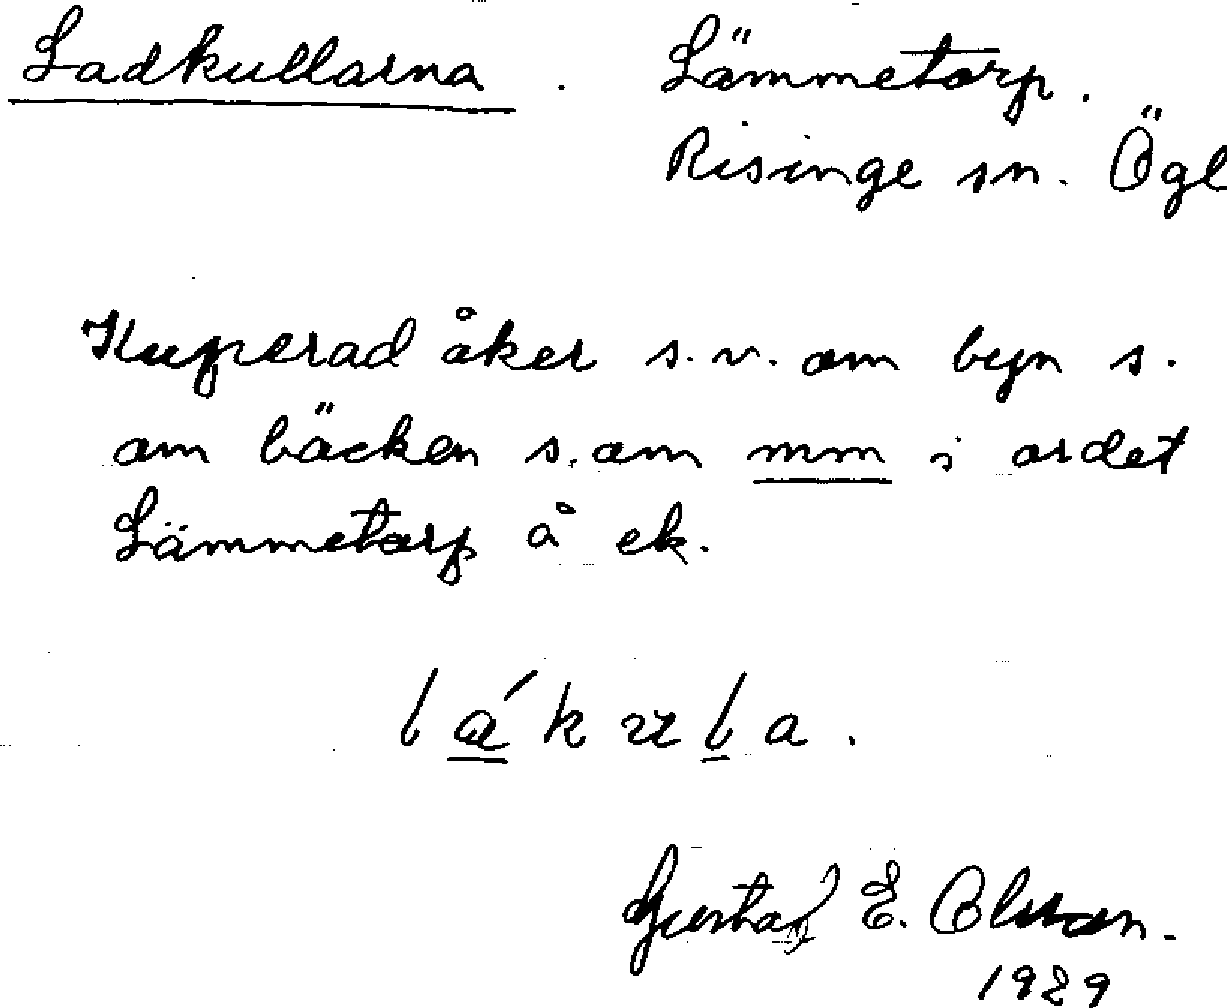 Ladkullarna. Lämmetorp.
Risinge sn. Ögl
Kuperad åker s.v. om byn s.
om bäcken s. om mm i ordet
Lämmetorp å ek.
lákula.
Gustaf E. Olsson.
1929